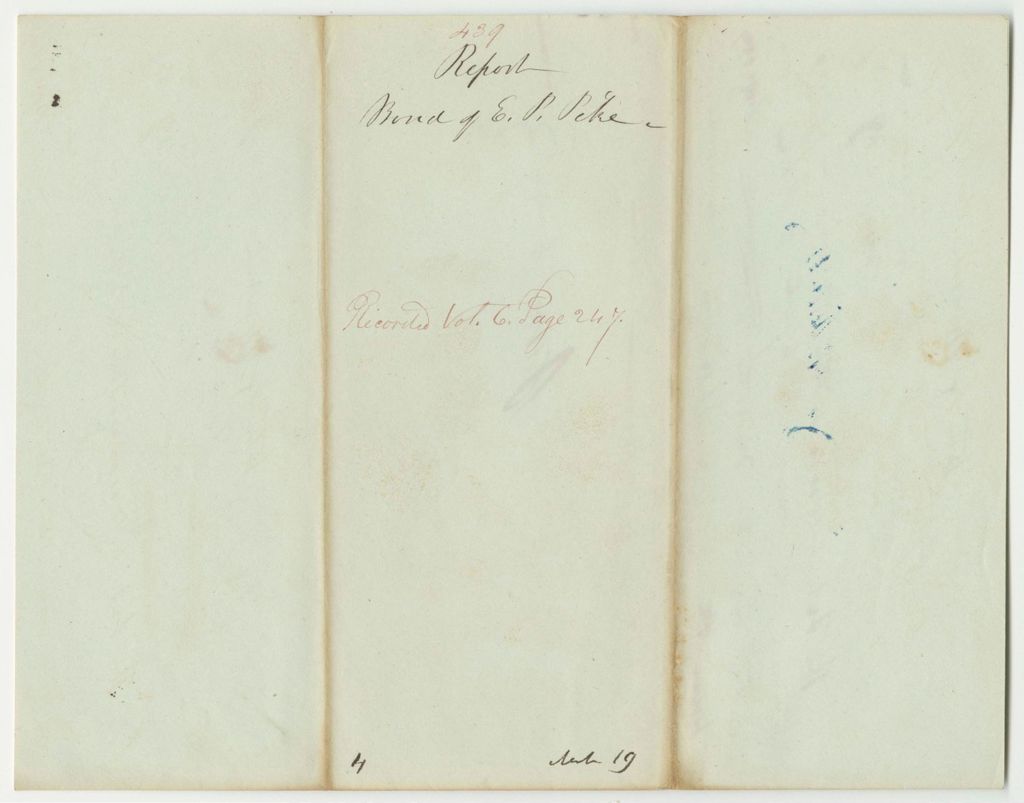 439
Report
Bond of E. P. Pike
Recorded Vol. 6. Page 247.
4
19